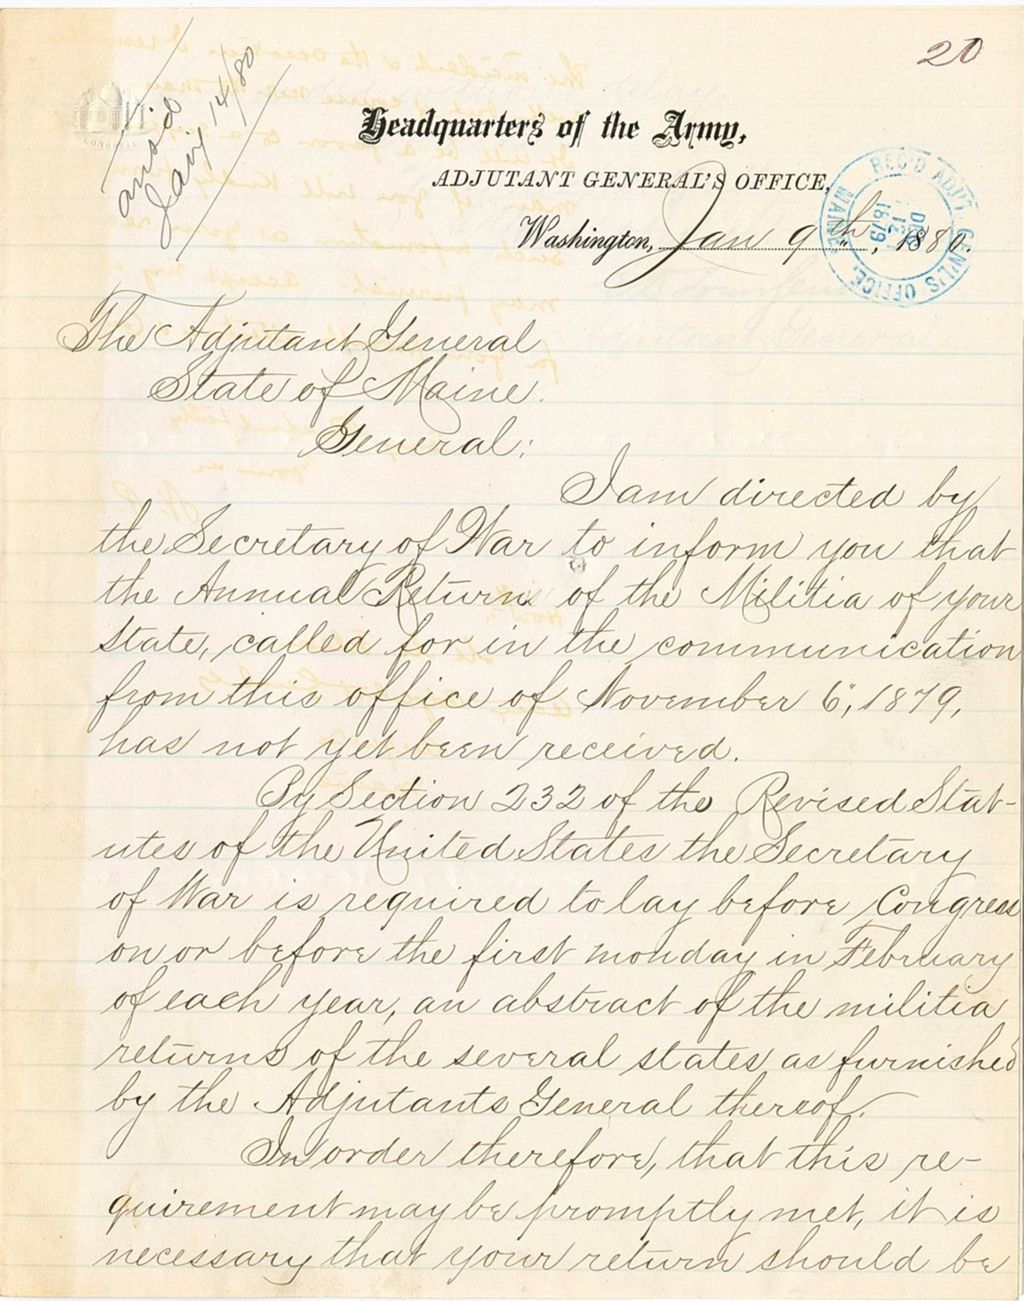 20
ansd
Jany 14/80
CONGRESS
Headquarters of the Army,
ADJUTANT GENERAL'S OFFICE,
Washington, Jan 9th, 1880.
REC'D ADJ'T. GEN'L'S OFFICE, MAINE.
DEC
12
1879
The Adjutant General
State of Maine.
General:
I am directed by
the Secretary of War to inform you that
the Annual Return of the Militia of your
State, called for in the communication
from this office of November 6", 1879,
has not yet been received.
By Section 232 of the Revised Stat-
utes of the United States the Secretary
of War is required to lay before Congress
on or before the first monday in February
of each year, an abstract of the militia
returns of the several states, as furnished
by the Adjutants General thereof.
In order therefore, that this re-
quirement may be promptly met, it is
necessary that your return should be